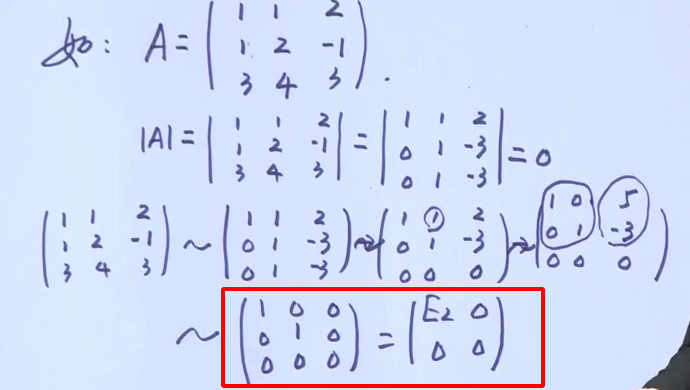 如: A = ( 1 1 2
1 2 -1
3 4 3 ).
|A| = | 1 1 2
1 2 -1
3 4 3 | = | 1 1 2
0 1 -3
0 1 -3 | = 0
( 1 1 2
1 2 -1
3 4 3 ) ~ ( 1 1 2
0 1 -3
0 1 -3 ) ~ ( 1 1 2
0 1 -3
0 0 0 ) ~ ( 1 0 5
0 1 -3
0 0 0 )
~ ( 1 0 0
0 1 0
0 0 0 ) = ( E₂ 0
0 0 )